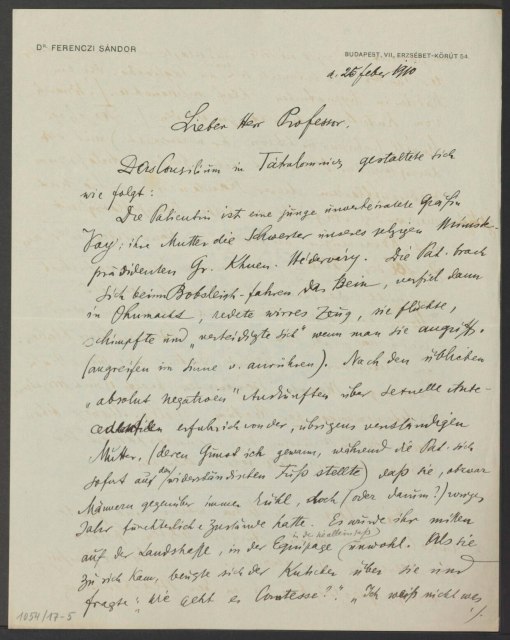 Dr. FERENCZI SÁNDOR
BUDAPEST, VII, ERZSÉBET-KÖRÚT 54.
d. 25 feber 1910
Lieber Herr Professor,
Das Consilium in Tátralomnicz gestaltete sich
wie folgt:
Die Patientin ist eine junge unverheiratete Gräfin
Vay; ihre Mutter die Schwester unseres jetzigen Minister-
präsidenten Gr. Khuen-Héderváry. Die Pat. brach
sich beim Bobsleigh-fahren das Bein, verfiel dann
in Ohnmacht, redete wirres Zeug, sie fluchte,
schimpfte und „verteidigte sich" wenn man sie angriff.
(angreifen im Sinne v. anrühren). Nach den üblichen
„absolut negativen" Auskünften über sexuelle Ante-
cedentien erfuhr ich von der, übrigens verständigen
Mutter, (deren Gunst ich gewann, während die Pat. sich
sofort auf den widerständischen Fuß stellte) daß sie, obzwar
Männern gegenüber immer kühl, doch (oder darum?) voriges
Jahr fürchterliche Zustände hatte. Es wurde ihr mitten
auf der Landstraße, in der Equipage unwohl. Als sie
zu sich kam, beugte sich der Kutscher über sie und
fragte: „Wie geht es Comtesse?" „Ich weiß nicht was
1054/17-5